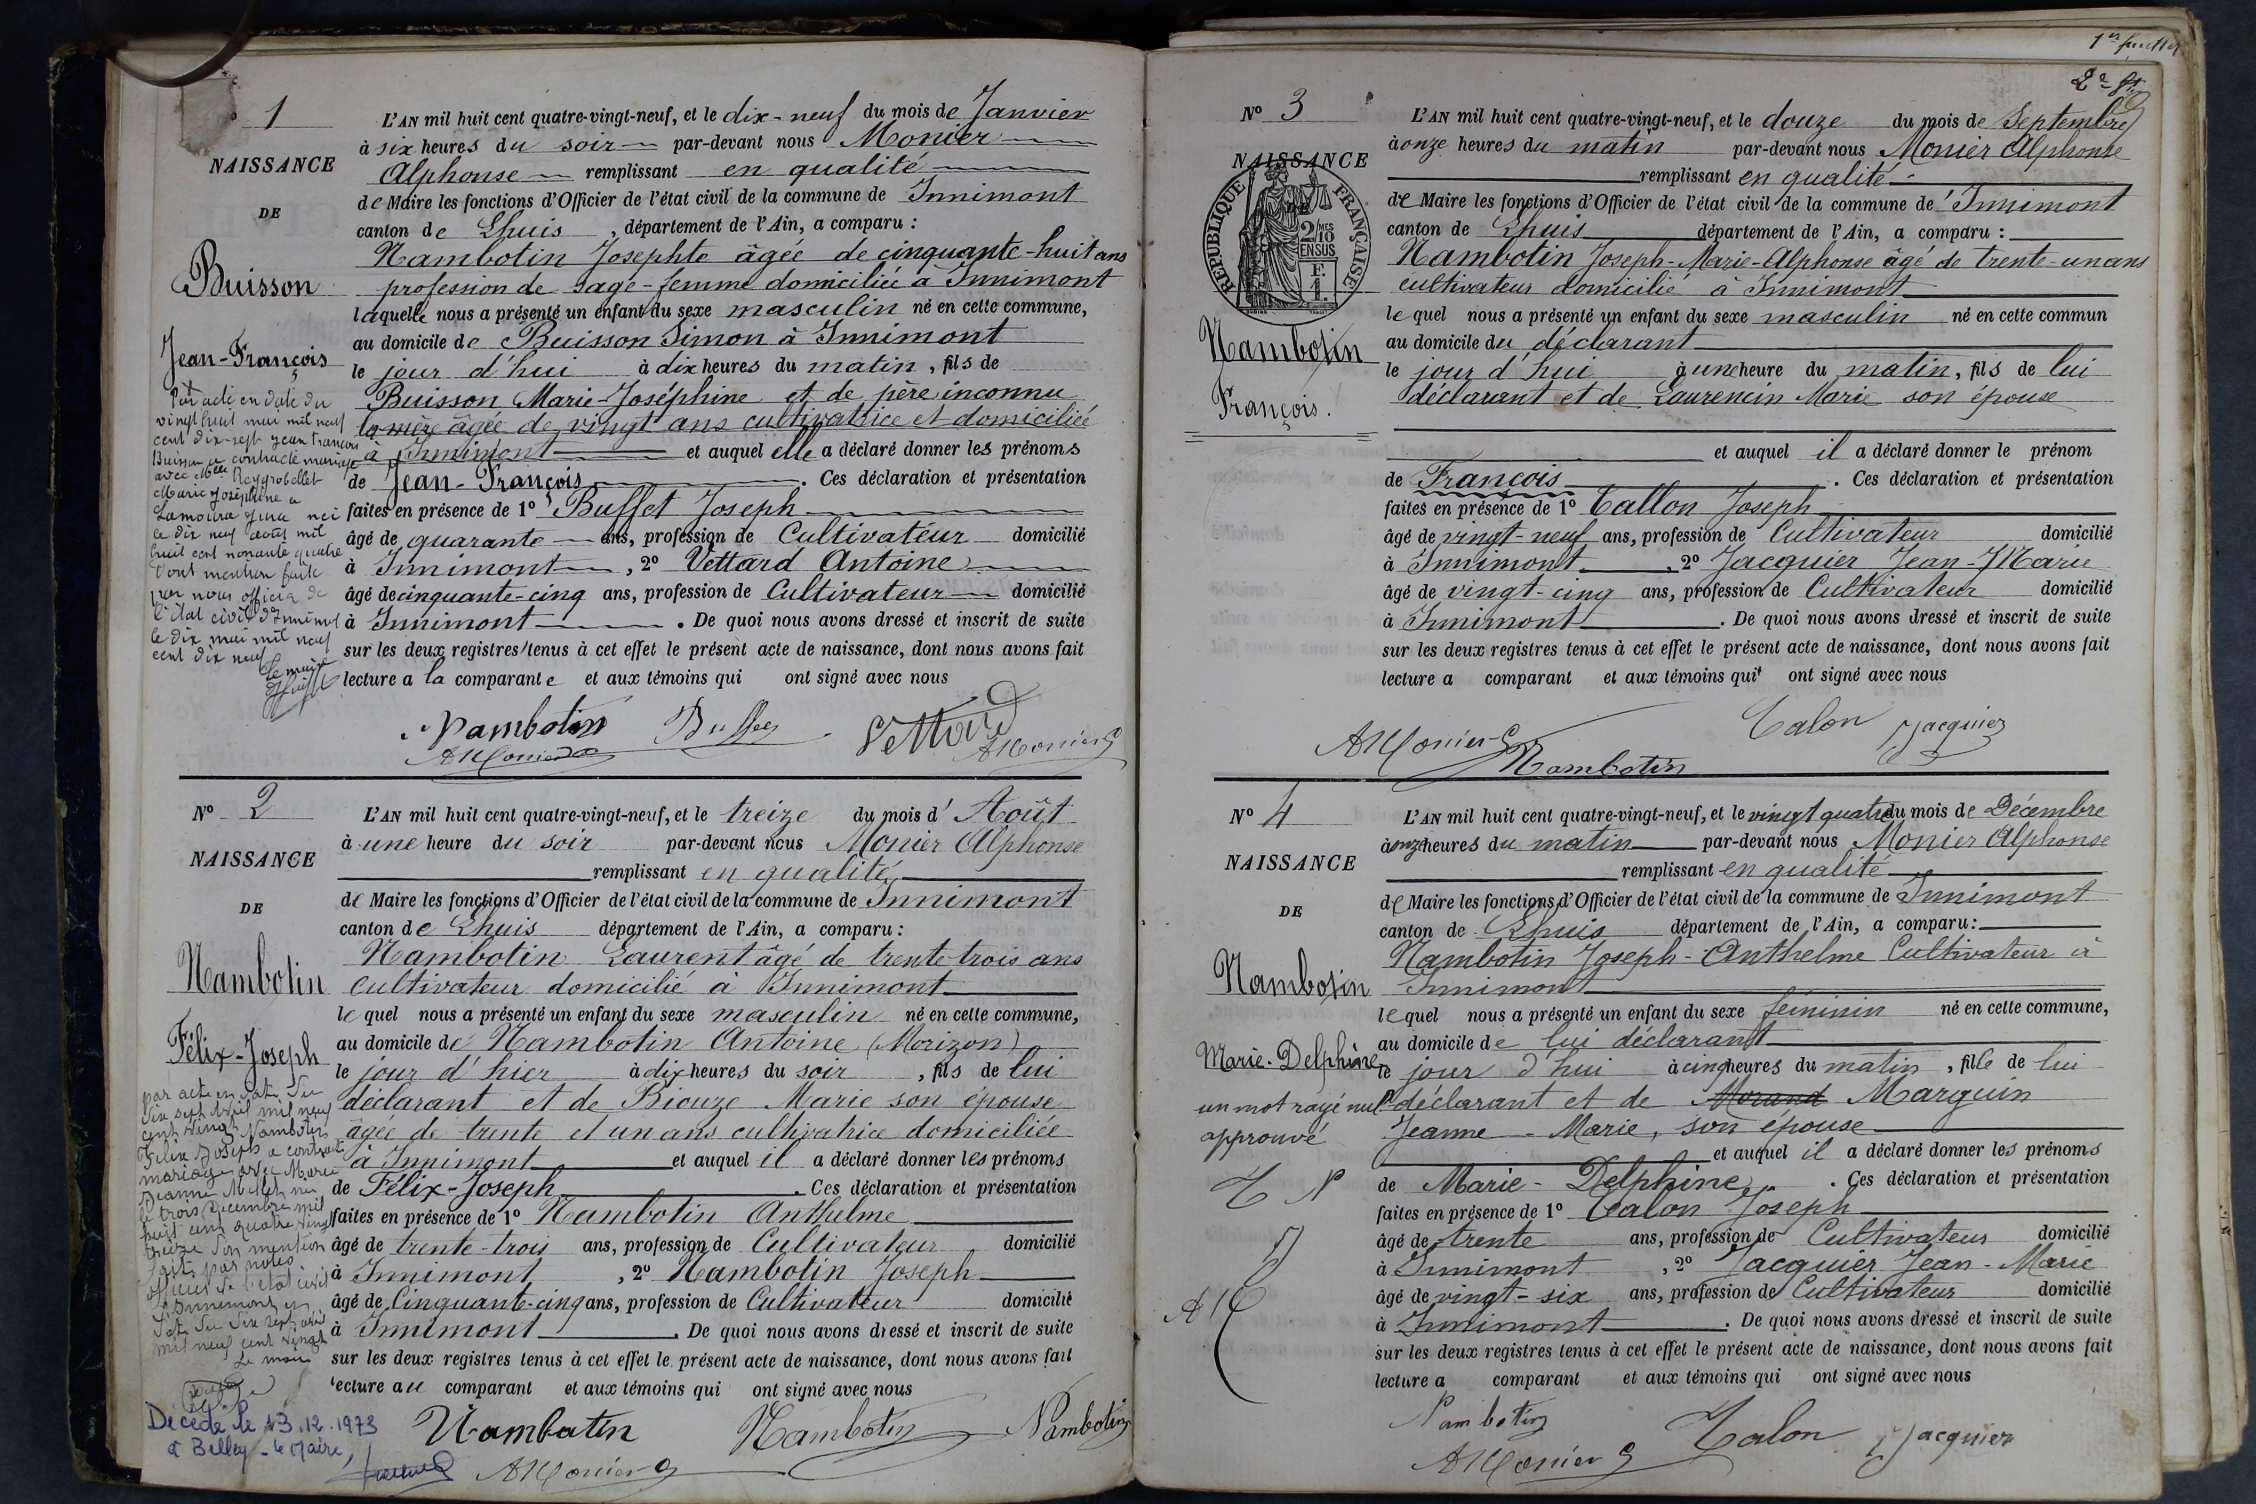 1
NAISSANCE
DE
Buisson
Jean-François
Par acte en date du
vingt huit mai mil neuf
cent dix-sept Jean François
Buisson a contracté mariage
avec Melle Reygrobellet
Marie Joséphine a
Lamoura Jura née
le dix neuf août mil
huit cent nonante quatre
Dont mention faite
par nous officier de
l'état civil d'Innimont
le dix mai mil neuf
cent dix neuf
Le maire
L'AN mil huit cent quatre-vingt-neuf, et le dix-neuf du mois de Janvier
à six heures du soir par-devant nous Monier
Alphonse remplissant en qualité
de Maire les fonctions d'Officier de l'état civil de la commune de Innimont
canton de Lhuis, département de l'Ain, a comparu :
Nambotin Josephte âgée de cinquante-huit ans
profession de sage-femme domiciliée à Innimont
laquelle nous a présenté un enfant du sexe masculin né en cette commune,
au domicile de Buisson Simon à Innimont
le jour d'hui à dix heures du matin, fils de
Buisson Marie-Joséphine et de père inconnu
la mère âgée de vingt ans cultivatrice et domiciliée
à Innimont et auquel elle a déclaré donner les prénoms
de Jean-François. Ces déclaration et présentation
faites en présence de 1º Buffet Joseph
âgé de quarante ans, profession de Cultivateur domicilié
à Innimont, 2º Vettard Antoine
âgé de cinquante-cinq ans, profession de Cultivateur domicilié
à Innimont. De quoi nous avons dressé et inscrit de suite
sur les deux registres tenus à cet effet le présent acte de naissance, dont nous avons fait
lecture a la comparante et aux témoins qui ont signé avec nous
Nambotin Buffet Vettard
AMonier AMonier
Nº 2
NAISSANCE
DE
Nambotin
Félix-Joseph
par acte en date du
dix sept avril mil neuf
cent vingt Nambotin
Félix Joseph a contracté
mariage avec Marie
Jeanne Millet née
le trois décembre mil
huit cent quatre vingt
treize Don mention
faite par nous
officier de l'état civil
d'Innimont en
date du dix sept avril
mil neuf cent vingt
Le maire
Décédé le 13.12.1973
à Belley - le Maire,
L'AN mil huit cent quatre-vingt-neuf, et le treize du mois d'Août
à une heure du soir par-devant nous Monier Alphonse
remplissant en qualité
de Maire les fonctions d'Officier de l'état civil de la commune de Innimont
canton de Lhuis département de l'Ain, a comparu :
Nambotin Laurent âgé de trente trois ans
cultivateur domicilié à Innimont
lequel nous a présenté un enfant du sexe masculin né en cette commune,
au domicile de Nambotin Antoine (Morizon)
le jour d'hier à dix heures du soir, fils de lui
déclarant et de Biouze Marie son épouse
âgée de trente et un ans cultivatrice domiciliée
à Innimont et auquel il a déclaré donner les prénoms
de Félix-Joseph. Ces déclaration et présentation
faites en présence de 1º Nambotin Anthelme
âgé de trente-trois ans, profession de Cultivateur domicilié
à Innimont, 2º Nambotin Joseph
âgé de Cinquante-cinq ans, profession de Cultivateur domicilié
à Innimont. De quoi nous avons dressé et inscrit de suite
sur les deux registres tenus à cet effet le présent acte de naissance, dont nous avons fait
lecture au comparant et aux témoins qui ont signé avec nous
Nambotin Nambotin Nambotin
AMonier
1er feuillet
2e ft
Nº 3
NAISSANCE
DE
REPUBLIQUE FRANÇAISE
2/10 MES
EN SUS
F.
1.
Nambotin
François.
L'AN mil huit cent quatre-vingt-neuf, et le douze du mois de Septembre
à onze heures du matin par-devant nous Monier Alphonse
remplissant en qualité
de Maire les fonctions d'Officier de l'état civil de la commune de Innimont
canton de Lhuis département de l'Ain, a comparu :
Nambotin Joseph-Marie-Alphonse âgé de trente-un ans
cultivateur domicilié à Innimont
lequel nous a présenté un enfant du sexe masculin né en cette commun
au domicile du déclarant
le jour d'hui à une heure du matin, fils de lui
déclarant et de Laurencin Marie son épouse
et auquel il a déclaré donner le prénom
de François. Ces déclaration et présentation
faites en présence de 1º Tallon Joseph
âgé de vingt-neuf ans, profession de Cultivateur domicilié
à Innimont, 2º Jacquier Jean-Marie
âgé de vingt-cinq ans, profession de Cultivateur domicilié
à Innimont. De quoi nous avons dressé et inscrit de suite
sur les deux registres tenus à cet effet le présent acte de naissance, dont nous avons fait
lecture a comparant et aux témoins qui ont signé avec nous
Talon Jacquier
AMonier Nambotin
Nº 4
NAISSANCE
DE
Nambotin
Marie-Delphine
un mot rayé nul
approuvé
T N
J
AM
L'AN mil huit cent quatre-vingt-neuf, et le vingt quatre du mois de Décembre
à onze heures du matin par-devant nous Monier Alphonse
remplissant en qualité
de Maire les fonctions d'Officier de l'état civil de la commune de Innimont
canton de Lhuis département de l'Ain, a comparu :
Nambotin Joseph-Anthelme Cultivateur à
Innimont
lequel nous a présenté un enfant du sexe féminin né en cette commune,
au domicile de lui déclarant
le jour d'hui à cinq heures du matin, fille de lui
déclarant et de Morand Marguin
Jeanne-Marie, son épouse
et auquel il a déclaré donner les prénoms
de Marie-Delphine. Ces déclaration et présentation
faites en présence de 1º Talon Joseph
âgé de trente ans, profession de Cultivateur domicilié
à Innimont, 2º Jacquier Jean-Marie
âgé de vingt-six ans, profession de Cultivateur domicilié
à Innimont. De quoi nous avons dressé et inscrit de suite
sur les deux registres tenus à cet effet le présent acte de naissance, dont nous avons fait
lecture a comparant et aux témoins qui ont signé avec nous
Nambotin
AMonier Talon Jacquier